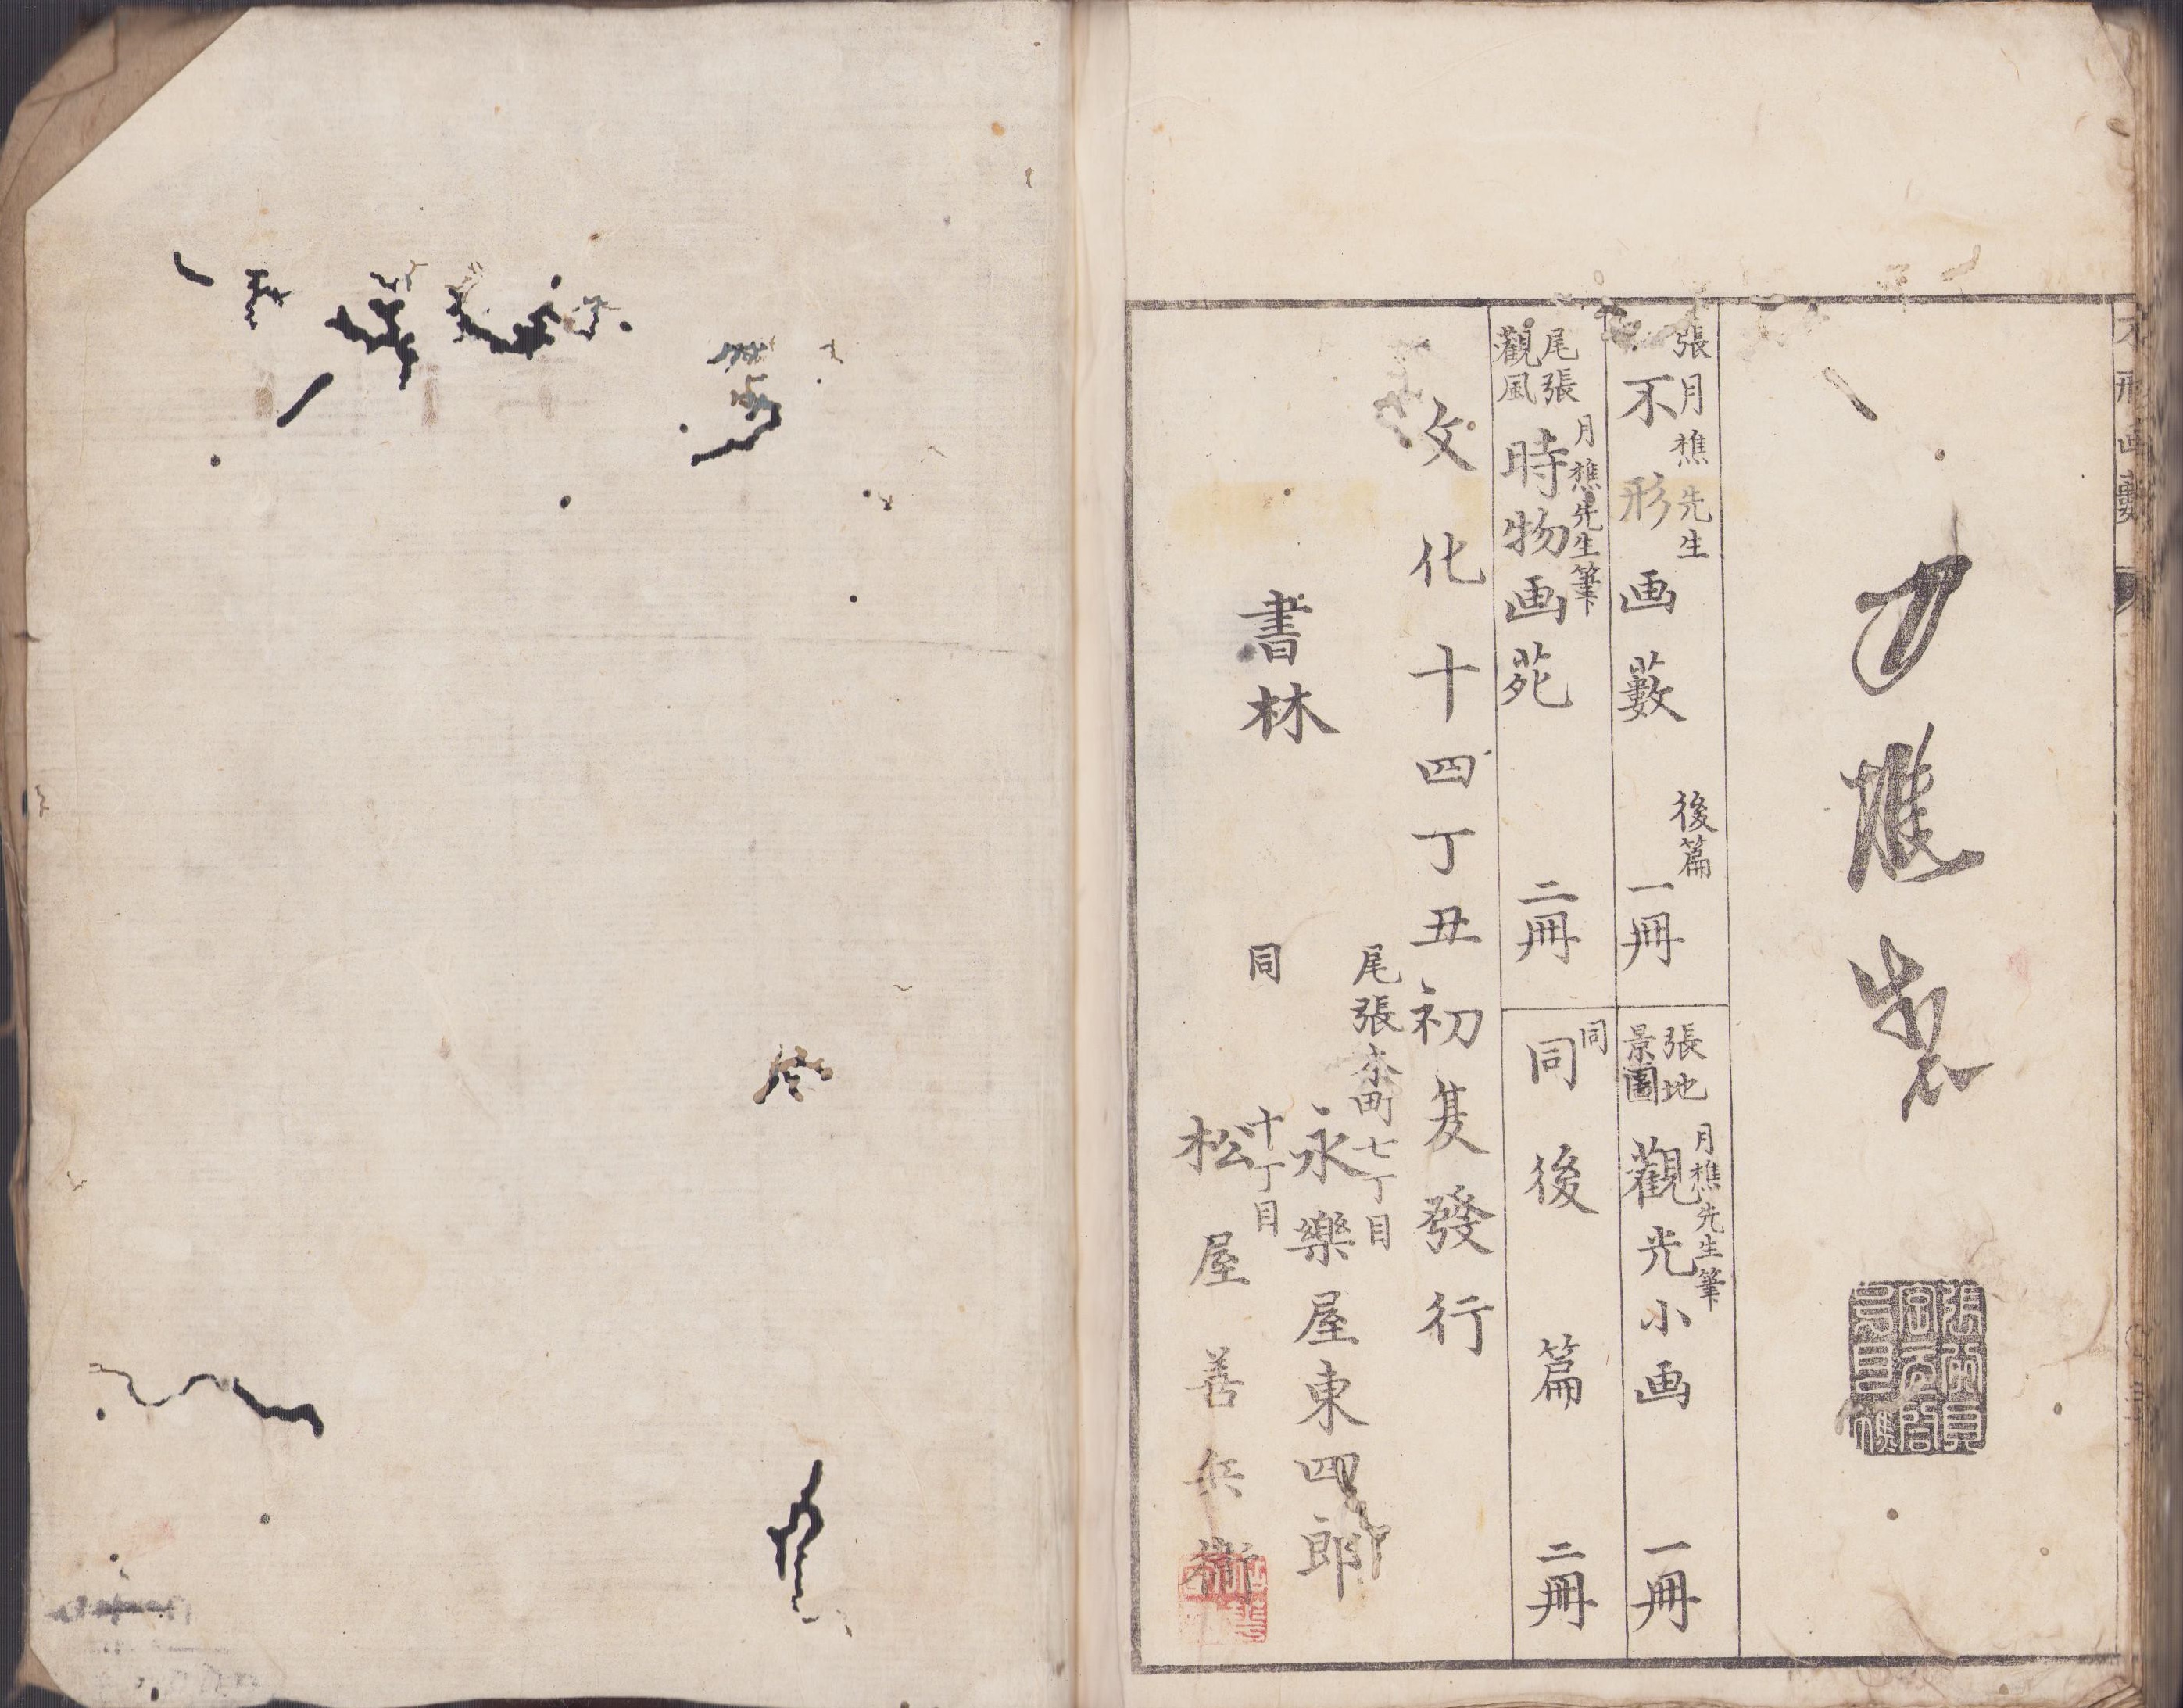 不形画藪
月樵製
張月樵先生
不形画藪
後篇
一冊
張地
景圖
月樵先生筆
觀光小画
一冊
尾張
觀風
月樵先生筆
時物画苑
二冊
同
同後篇
二冊
文化十四丁丑初夏發行
書林
尾張本町七丁目
永樂屋東四郎
同
十丁目
松屋善兵衛